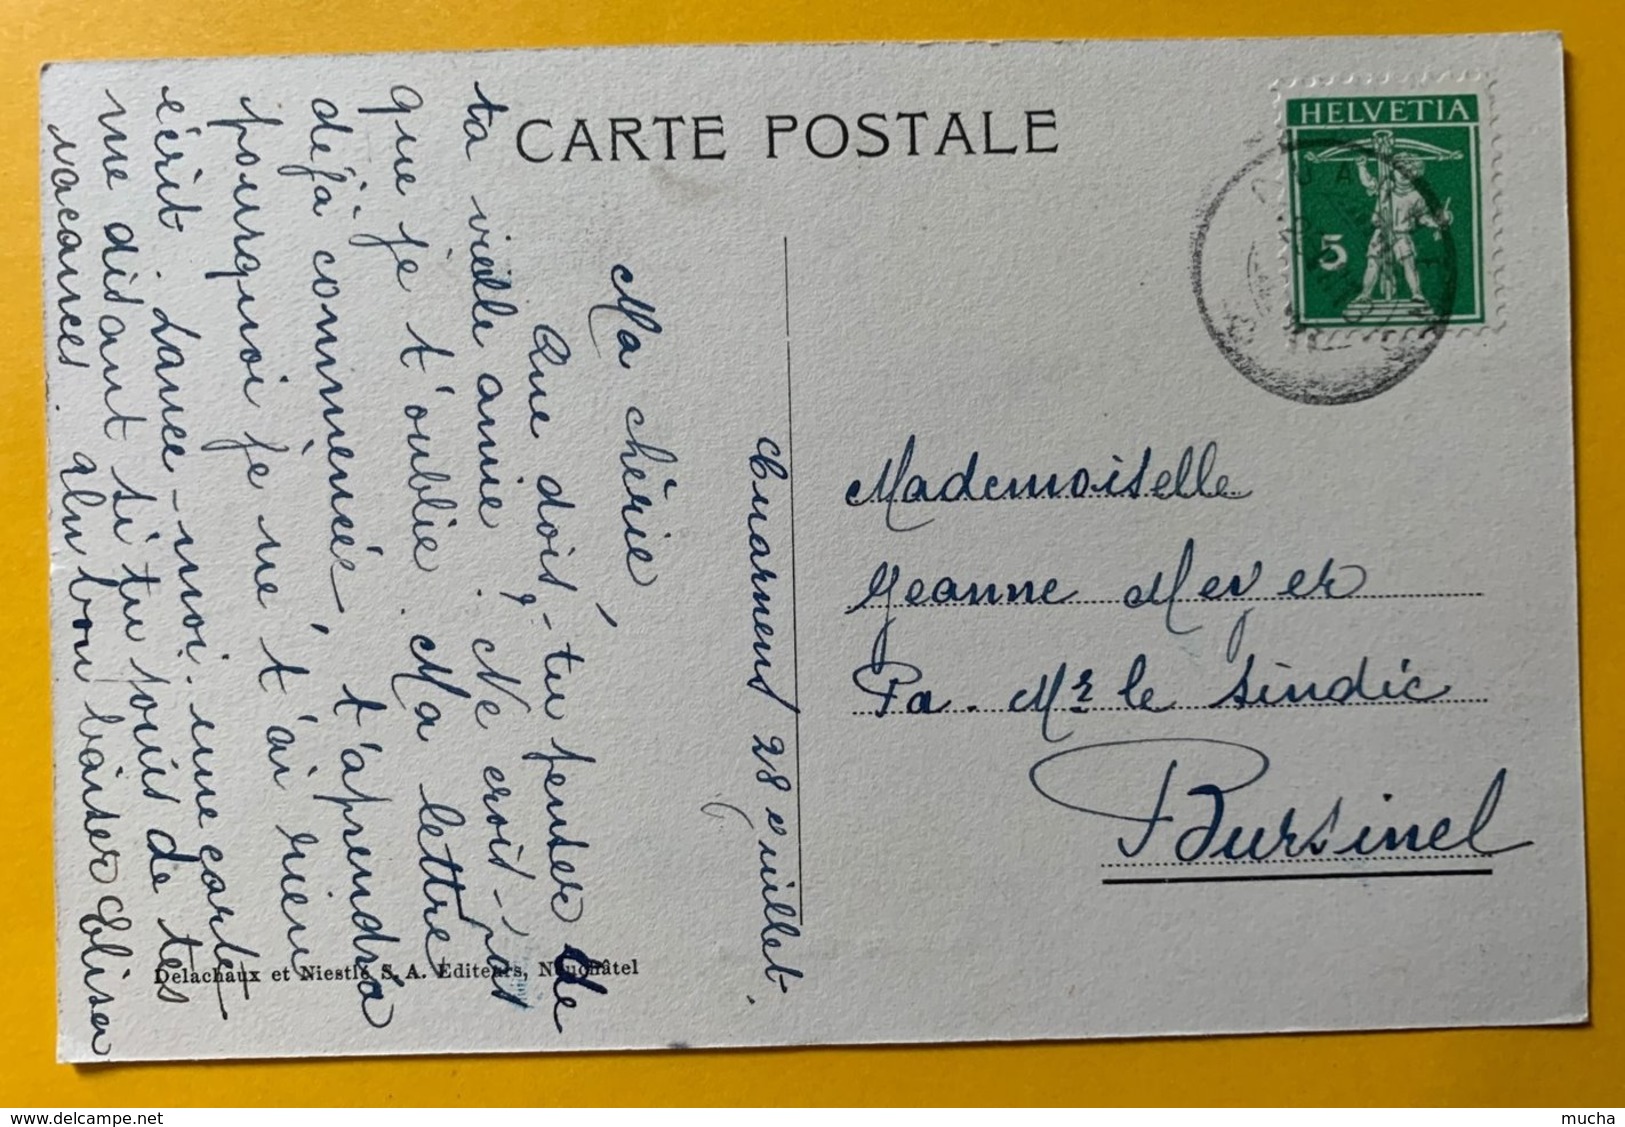 CARTE POSTALE
HELVETIA
5
Cuarnens 28 Juillet.
Ma chérie
Que dois-tu penser de
ta vieille amie. Ne croit-pas
que je t'oublie. Ma lettre
déjà commencée, t'aprendra
pourquoi je ne t'ai rien
écrit. Lance-moi une carte
me disant si tu jouis de tes
vacances. Un bon baiser Elisa
Mademoiselle
Jeanne Meyer
Pa. Mr le Sindic
Bursinel
Delachaux et Niestlé S. A. Editeurs, Neuchâtel
mucha